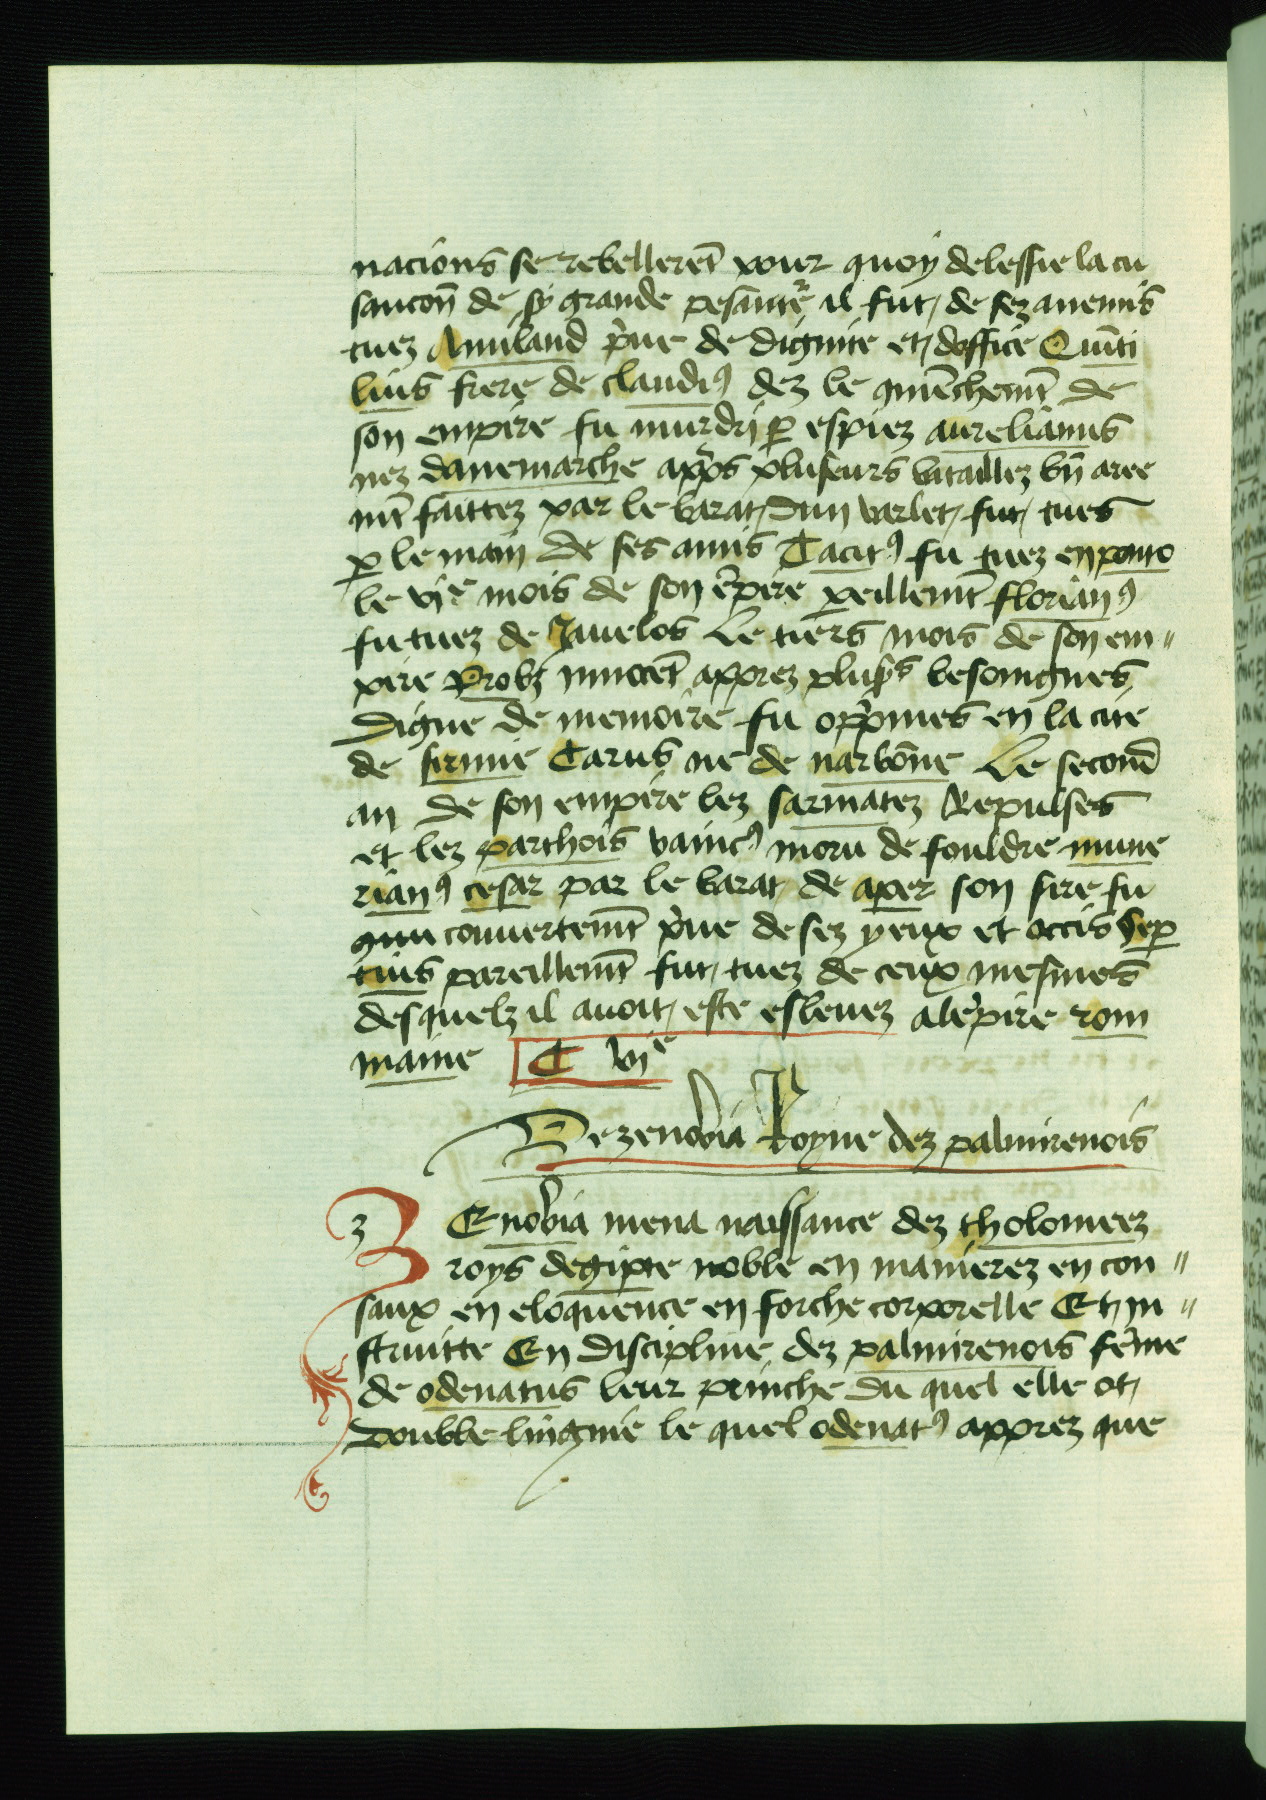 nacions se rebellerēt pour quoy delessie la cu
sancon̄ de sy grande pesantr̄ il fut de sez anemis
tuez Amiland p̄ue de dignite et doffice Quīti
lius frere de claudiꝰ dez le qmēchemt̄ de
son empire fu murdri ꝑ espiez aurelianus
nez danemarche app̄s pluseurs bataillez bn̄ aree
mt̄ faittez par le barat dun varlet fut tues
ꝑ le main de ses amis Tacitꝰ fu tuez en ponto
le vjᵉ mois de son ēpire peillemt̄ florianꝰ
fu tuez de Javelos Le tiers mois de son em〃
pire Probꝰ innocēt apprez plusʳˢ besoingnes
digne de memoire fu opp̄mes en la cite
de sirmie Carus ne de narbōne Le second
an de son empire lez sarmatez Repulses
et lez parthois vaincꝰ moru de fouldre mune
rianꝰ cesar par le barat de aper son sire fu
quu couuertemt̄ p̄ue de sez yeux et occis Seꝑ
tius pareillemt̄ fut tuez de ceux mesmes
desquelz il auoit este esleuez a lēpire rom
maine C vjᵉ
De zenobia Royne dez palmirenois
Zz Enobia mena naissance dez tholomeez
roys degipte noble en manierez en con〃
saux en eloquence en forche corporelle Et in〃
struitte En discipline dez palmirenois fēme
de odenatus leur prinche du quel elle ot
double lingnie le quel odenatꝰ apprez que